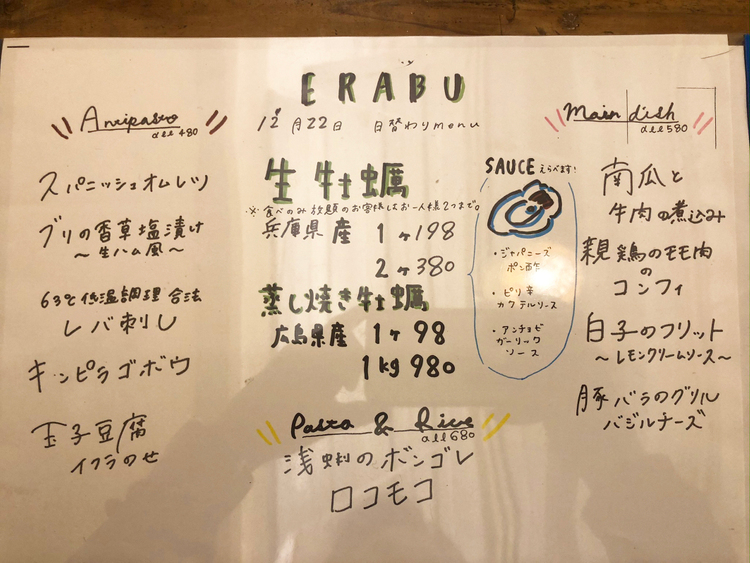 ERABU
12月22日 日替わりmenu
Antipasto
all 480
スパニッシュオムレツ
ブリの香草塩漬け
～生ハム風～
63℃低温調理 合法
レバ刺し
キンピラゴボウ
玉子豆腐
イクラのせ
生牡蠣
※食べのみ放題のお客様はお一人様2つまで。
兵庫県産 1ヶ198
2ヶ380
蒸し焼き牡蠣
広島県産 1ヶ98
1kg 980
SAUCE えらべます!
・ジャパニーズ
ポン酢
・ピリ辛
カクテルソース
・アンチョビ
ガーリック
ソース
Pasta & Rice
all 680
浅蜊のボンゴレ
ロコモコ
Main dish
all 580
南瓜と
牛肉の煮込み
親鶏のモモ肉
の
コンフィ
白子のフリット
～レモンクリームソース～
豚バラのグリル
バジルチーズ